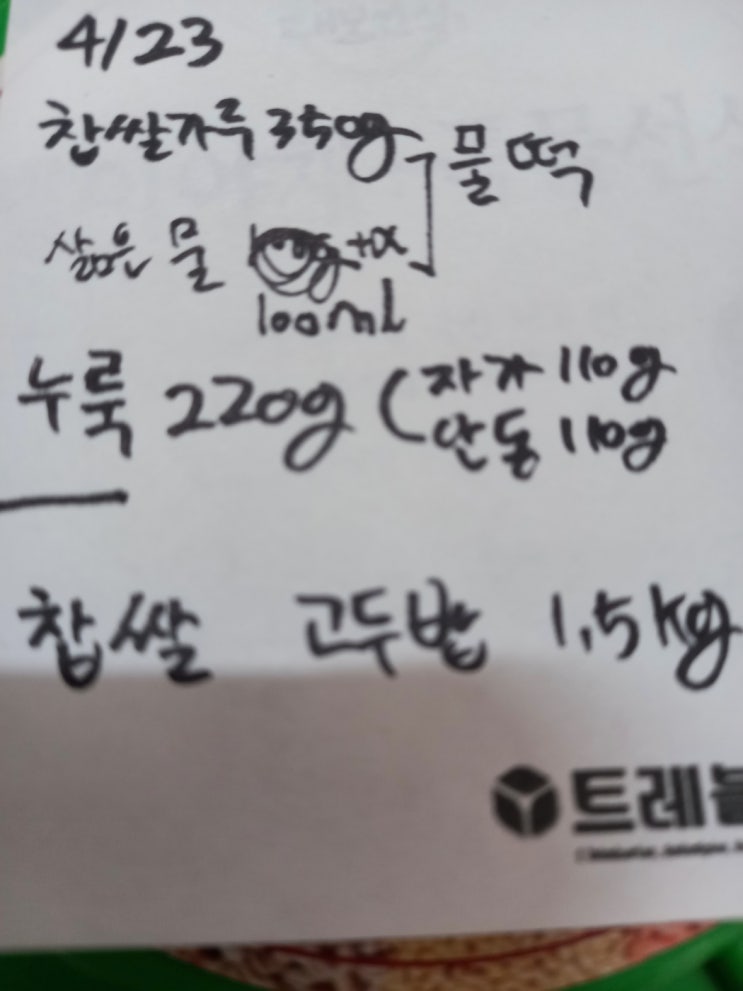 4/23
찹쌀가루 350g
물떡
삶은 물 +α
100ml
누룩 220g ( 자가 110g
안동 110g
찹쌀 고두밥 1.5kg
트레블